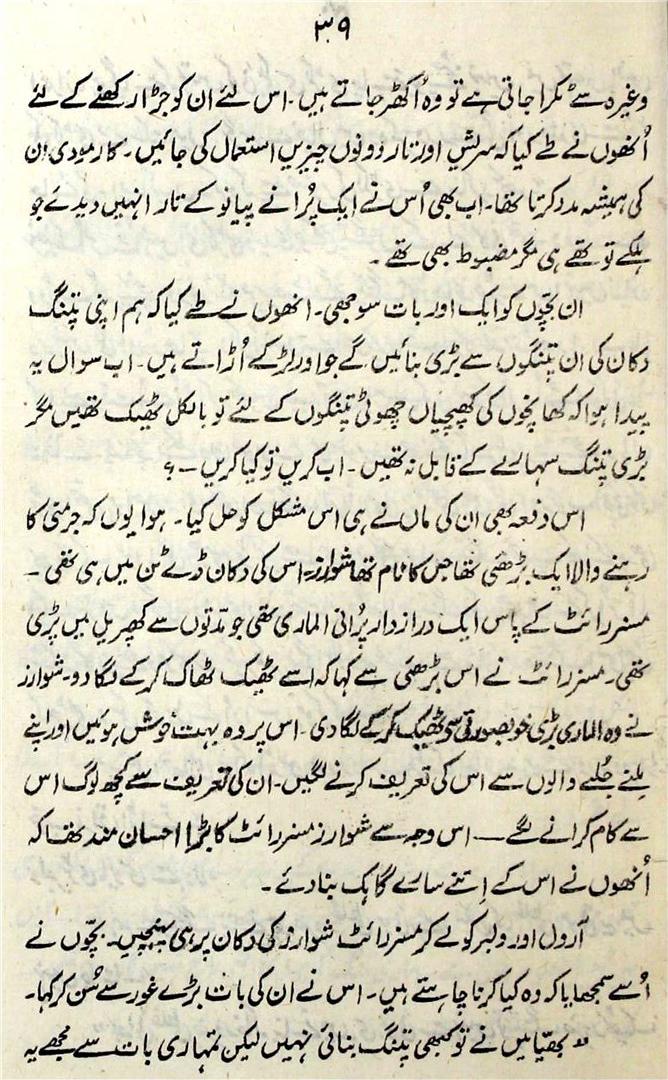 ۳۹
وغیرہ سے ٹکرا جاتی ہے تو وہ اُکھڑ جاتے ہیں۔ اس لئے ان کو جڑا رکھنے کے لئے
اُنھوں نے طے کیا کہ سریش اور تار دونوں چیزیں استعمال کی جائیں۔ کارمودی ان
کی ہمیشہ مدد کرتا تھا۔ اب بھی اُس نے ایک پُرانے پیانو کے تار انہیں دیدیے جو
ہلکے تو تھے ہی مگر مضبوط بھی تھے۔
ان بچّوں کو ایک اور بات سوجھی۔ انھوں نے طے کیا کہ ہم اپنی پتنگ
دکان کی ان پتنگوں سے بڑی بنائیں گے جو اور لڑکے اُڑاتے ہیں۔ اب سوال یہ
پیدا ہوا کہ کھپاچوں کی کھپچیاں چھوٹی پتنگوں کے لئے تو بالکل ٹھیک تھیں مگر
بڑی پتنگ سہارنے کے قابل نہ تھیں۔ اب کریں تو کیا کریں ۔؟
اس دفعہ بھی ان کی ماں نے ہی اس مشکل کو حل کیا۔ ہوا یوں کہ جرمنی کا
رہنے والا ایک بڑھئی تھا جس کا نام تھا شوارز۔ اس کی دکان ڈے ٹن میں ہی تھی۔
مسز رائٹ کے پاس ایک دراز دار پُرانی الماری تھی جو مدّتوں سے کھپریل میں پڑی
تھی۔ مسز رائٹ نے اس بڑھئی سے کہا کہ اسے ٹھیک ٹھاک کر کے لگا دو۔ شوارز
نے وہ الماری بڑی خوبصورتی سے ٹھیک کر کے لگا دی۔ اس پر وہ بہت خوش ہوئیں اور اپنے
مِلنے جُلنے والوں سے اس کی تعریف کرنے لگیں۔ ان کی تعریف سے کچھ لوگ اس
سے کام کرانے لگے ــ اس وجہ سے شوارز مسز رائٹ کا بڑا احسان مند تھا کہ
اُنھوں نے اس کے اِتنے سارے گاہک بنا دئے۔
آرول اور ولبر کو لے کر مسز رائٹ شوارز کی دکان پر ہی پہنچیں۔ بچّوں نے
اُسے سمجھایا کہ وہ کیا کرنا چاہتے ہیں۔ اس نے ان کی بات بڑے غور سے سُن کر کہا۔
"بھیّا میں نے تو کبھی پتنگ بنائی نہیں لیکن تمہاری بات سے مجھے یہ